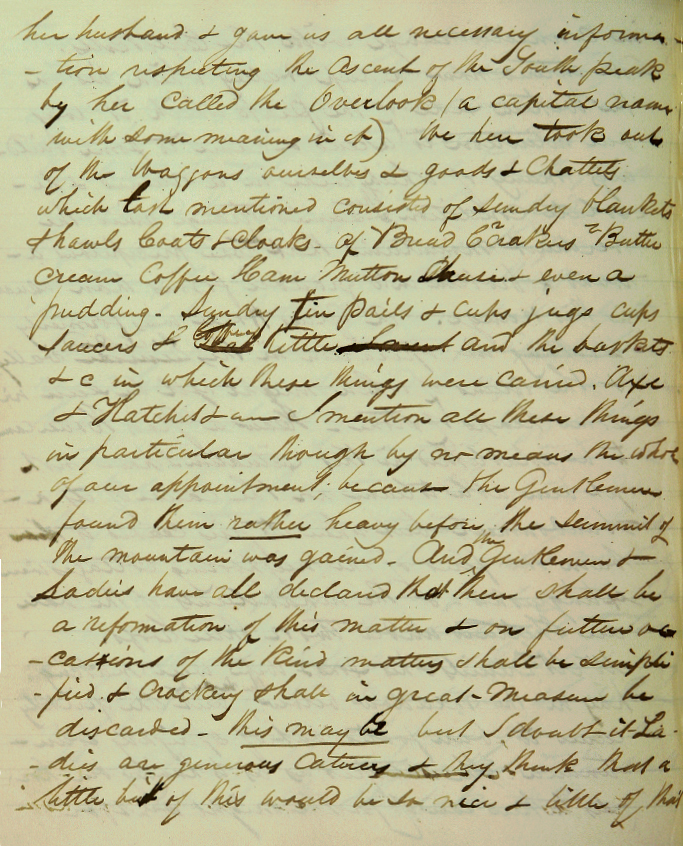 her husband & gave us all necessary informa-
-tion respecting the Ascent of the South peak
by her called the Overlook (a capital name
with some meaning in it) We here took out
of the Waggons ourselves & goods & Chattels
which last mentioned consisted of sundry blankets
shawls Coats & Cloaks - of Bread Crakers Butter
cream Coffee Ham Mutton & even a
pudding - Sundry tin pails & cups jugs cups
saucers & little and the baskets
&c in which these things were carried. Axe
& Hatchet &c I mention all these things
in particular though by no means the whole
of our appointment, because the Gentlemen
found them rather heavy before the summit of
the mountain was gained - And the Gentlemen &
Ladies have all declared that there shall be
a reformation of this matter & on future oc-
-casions of the kind matters shall be simpli
-fied & Crockery shall in great measure be
discarded - this may be but I doubt it La-
-dies are generous Catrers & they think that a
little bit of this would be so nice & little of that